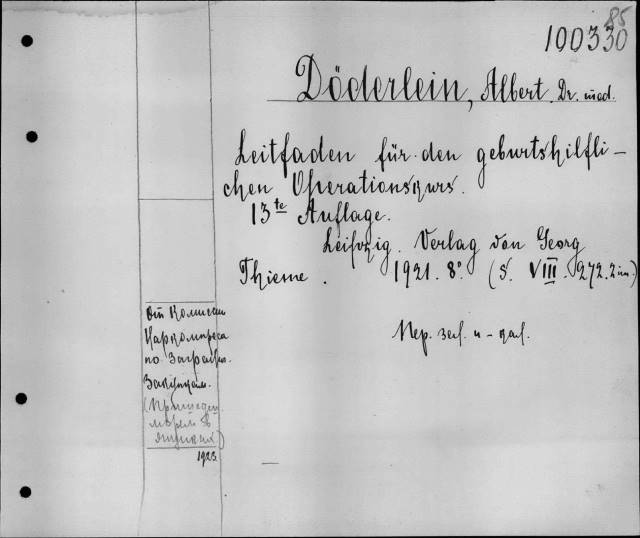 85
100330
Döderlein, Albert. Dr. med.
Leitfaden für den geburtshilfli-
chen Operationskurs.
13te Auflage.
Leipzig. Verlag von Georg
Thieme. 1921. 8°. (S. VIII. 272. 2 nn.)
От Комиссии
Наркомпроса
по Загранич.
Закупкам.
(Пришедш.
морем в
ящиках)
1923.